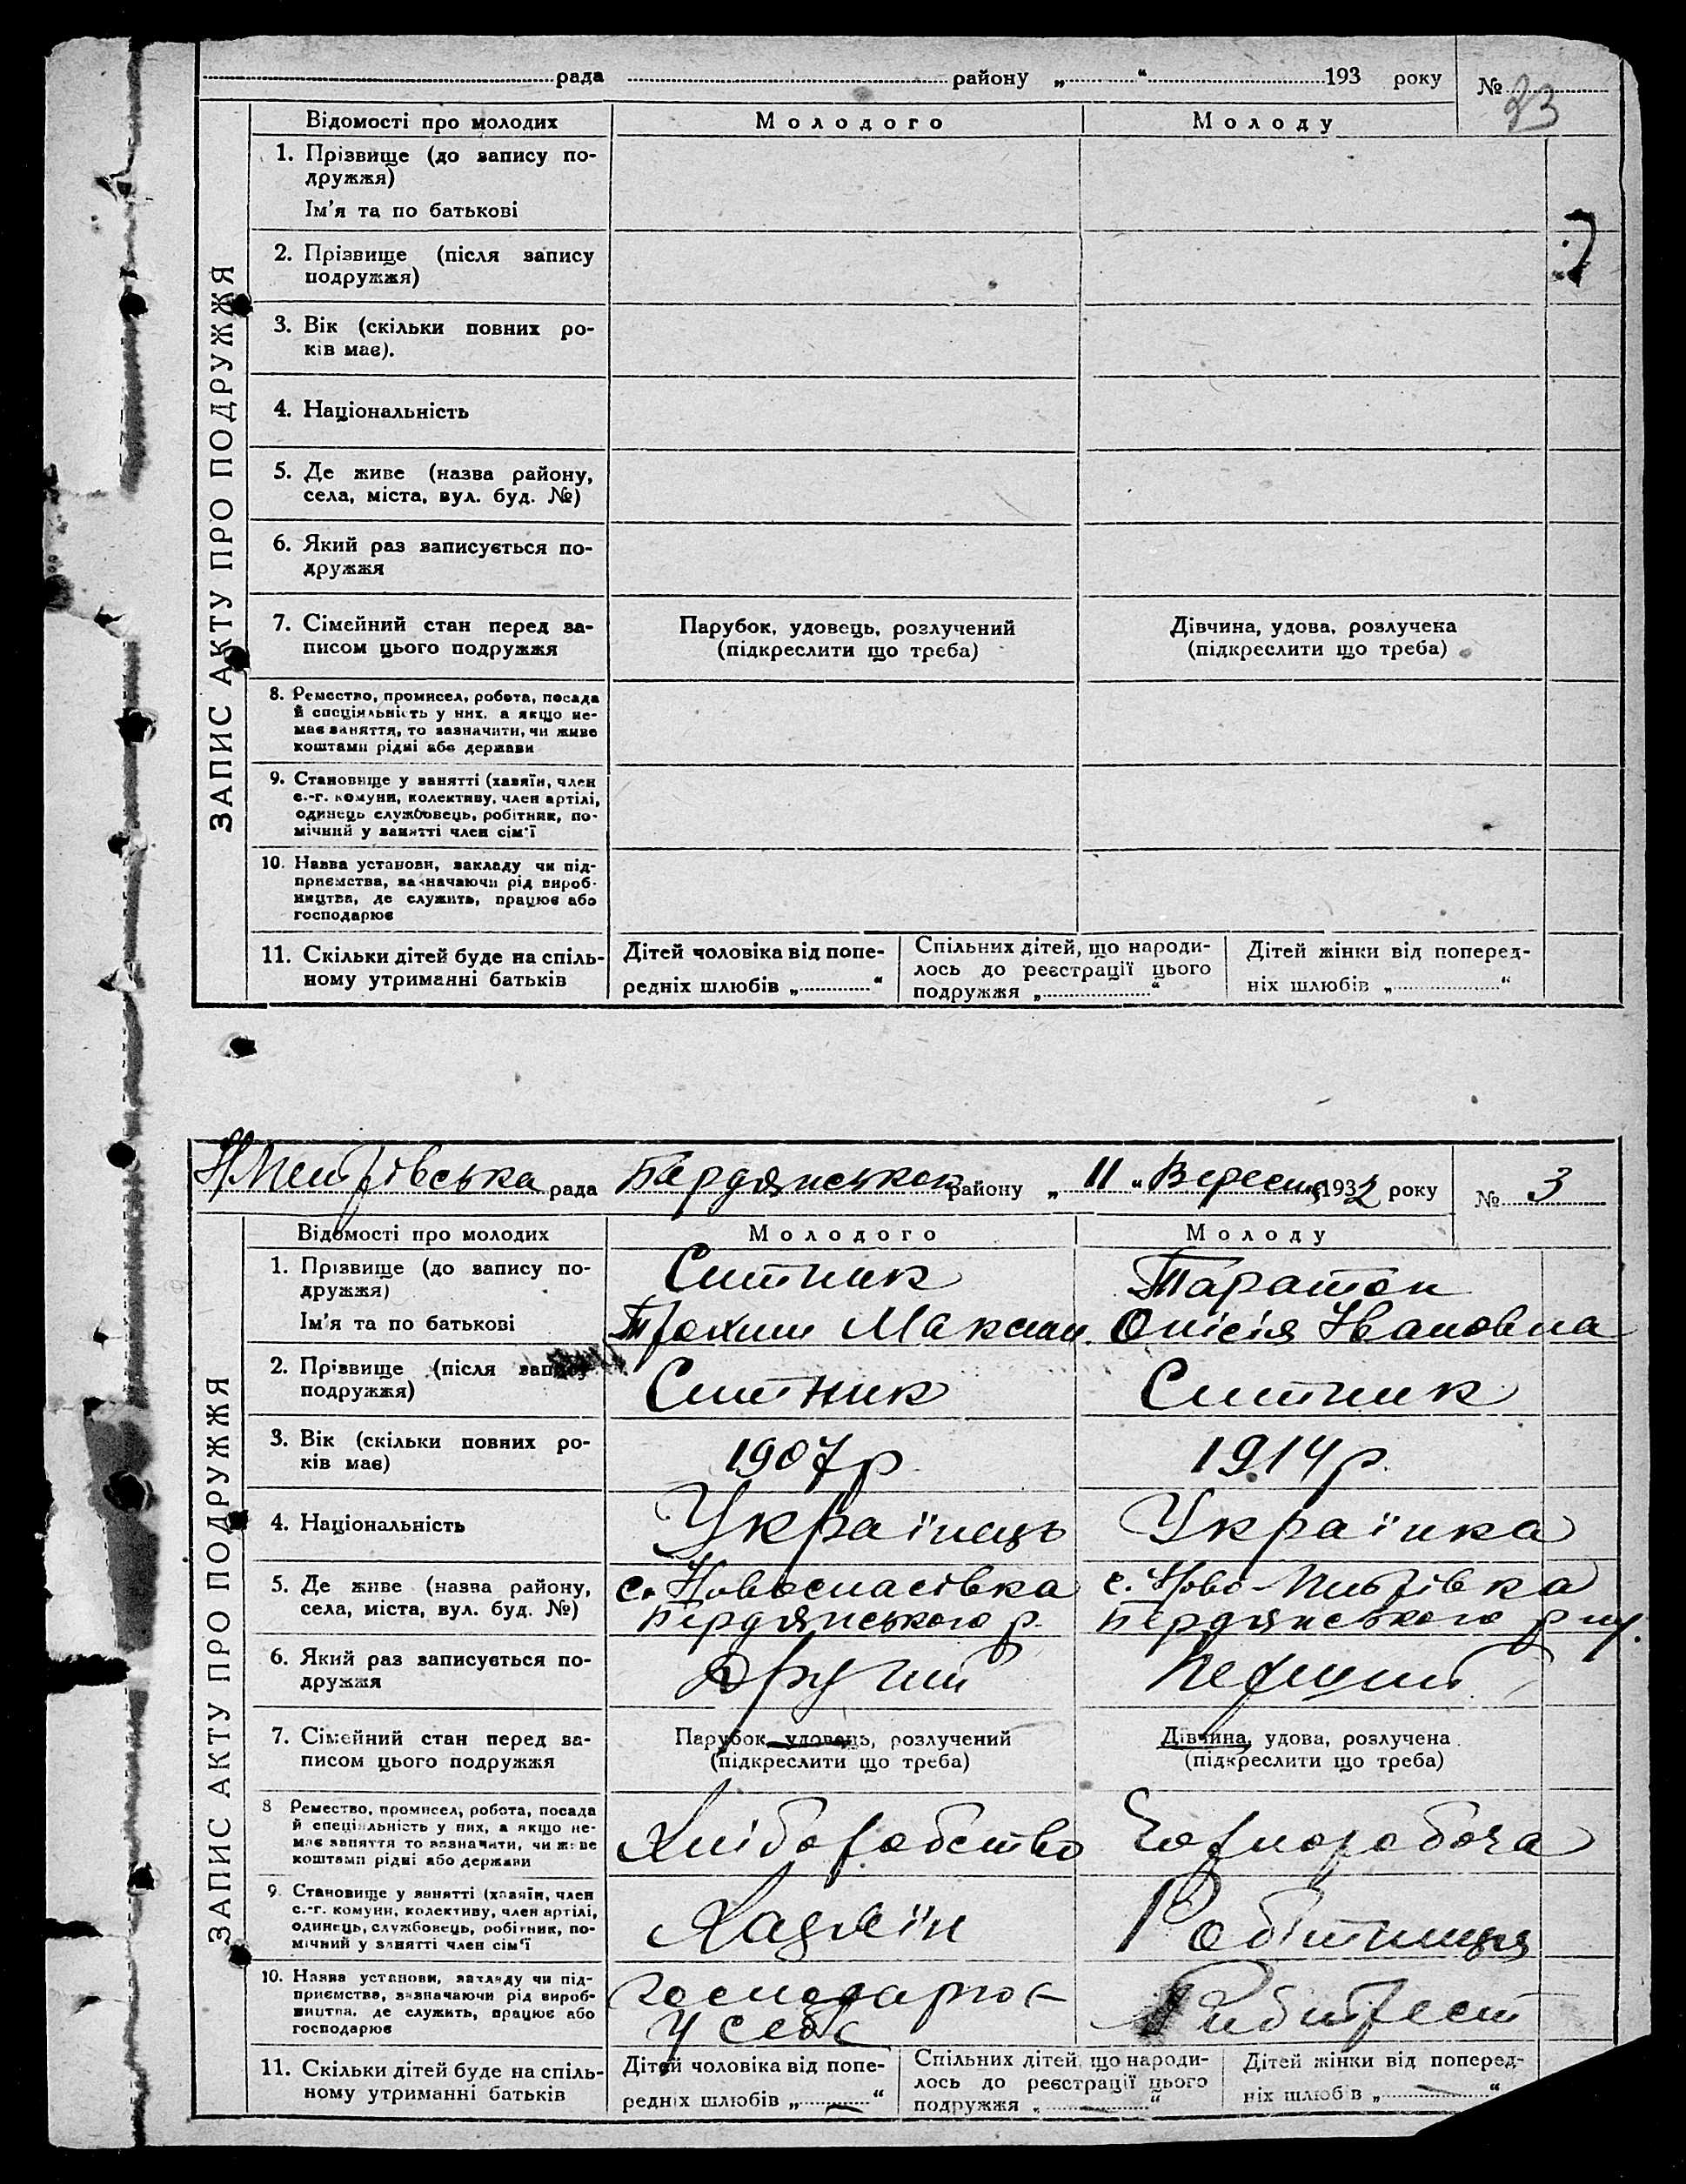 рада району „ “ 193 року № 23
ЗАПИС АКТУ ПРО ПОДРУЖЖЯ
Відомості про молодих Молодого Молоду
1. Прізвище (до запису по-
дружжя)
Ім'я та по батькові
2. Прізвище (після запису
подружжя)
3. Вік (скільки повних ро-
ків має).
4. Національність
5. Де живе (назва району,
села, міста, вул. буд. №)
6. Який раз записується по-
дружжя
7. Сімейний стан перед за-
писом цього подружжя
Парубок, удовець, розлучений
(підкреслити що треба)
Дівчина, удова, розлучена
(підкреслити що треба)
8. Ремество, промисел, робота, посада
й спеціяльність у них, а якщо не-
має заняття, то зазначити, чи живе
коштами рідні або держави
9. Становище у занятті (хазяїн, член
с.-г. комуни, колективу, член артілі,
одинець службовець, робітник, по-
мічний у занятті член сім'ї
10. Назва установи, закладу чи під-
приємства, зазначаючи рід вироб-
ництва, де служить, працює або
господарює
11. Скільки дітей буде на спіль-
ному утриманні батьків
Дітей чоловіка від попе-
редніх шлюбів „ “
Спільних дітей, що народи-
лось до реєстрації цього
подружжя „ “
Дітей жінки від поперед-
ніх шлюбів „ “
рада Бердянськок району „ 11 “ Вересня 1932 року № 3
ЗАПИС АКТУ ПРО ПОДРУЖЖЯ
Відомості про молодих Молодого Молоду
1. Прізвище (до запису по-
дружжя)
Ім'я та по батькові
Ситник
Трохим Максим.
Таратон
Онісія Івановна
2. Прізвище (після запису
подружжя)
Ситник
Ситник
3. Вік (скільки повних ро-
ків має)
1907 р
1914 р.
4. Національність
Українець
Українка
5. Де живе (назва району,
села, міста, вул. буд. №)
с. Новоспасівка
Бердянського р.
с. Ново-Петрівка
Бердянського р
6. Який раз записується по-
дружжя
Другий
Первий
7. Сімейний стан перед за-
писом цього подружжя
Парубок, удовець, розлучений
(підкреслити що треба)
Дівчина, удова, розлучена
(підкреслити що треба)
8 Ремество, промисел, робота, посада
й спеціяльність у них, а якщо не-
має заняття то зазначити, чи живе
коштами рідні або держави
Хліборобство
Чорноробоча
9. Становище у занятті (хазяїн, член
с.-г. комуни, колективу, член артілі,
одинець, службовець, робітник, по-
мічний у занятті член сім'ї
Хазяїн
Робітниця
10. Назва установи, закладу чи під-
приємства, зазначаючи рід вироб-
ництва, де служить, працює або
господарює
господарює
у себе
Рибтрест
11. Скільки дітей буде на спіль-
ному утриманні батьків
Дітей чоловіка від попе-
редніх шлюбів „ — “
Спільних дітей, що народи-
лось до реєстрації цього
подружжя „ — “
Дітей жінки від поперед-
ніх шлюбів „ — “